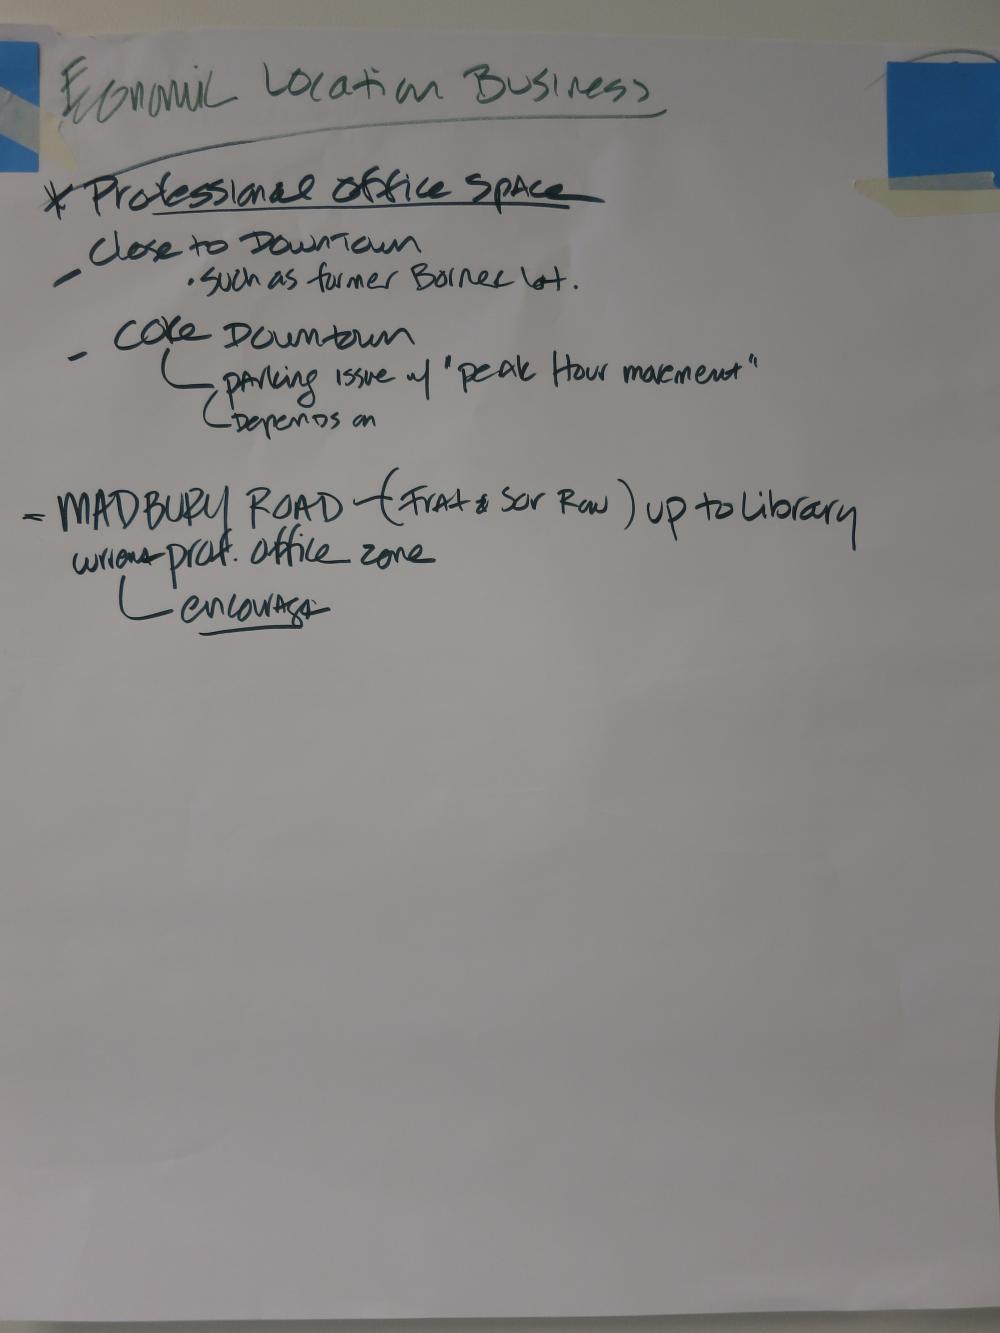 Economic Location Business
* Professional office space
- Close to Downtown
• such as former lot.
- Core Downtown
parking issue w/ "peak Hour movement"
Depends on
= MADBURY ROAD - (Frat & Sor Row) up to Library
prof. office zone
encourage